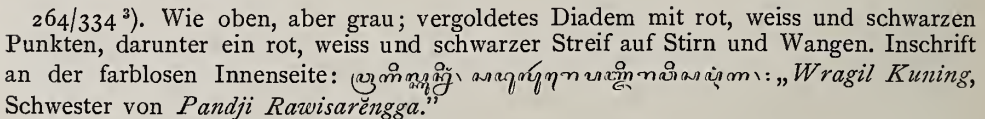 264/334 ³). Wie oben, aber grau; vergoldetes Diadem mit rot, weiss und schwarzen
Punkten, darunter ein rot, weiss und schwarzer Streif auf Stirn und Wangen. Inschrift
an der farblosen Innenseite: : „Wragil Kuning,
Schwester von Pandji Rawisarĕngga.”